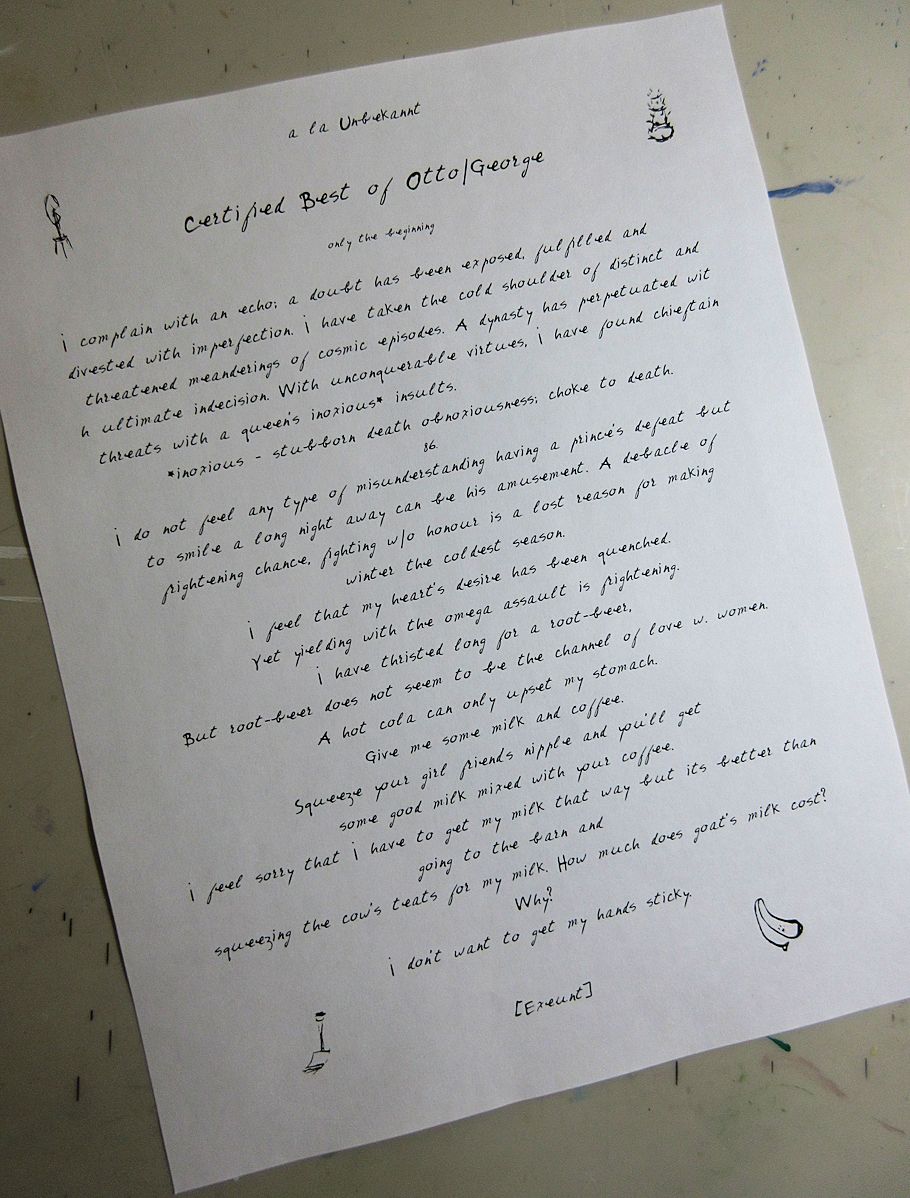 a la Unbekannt
Certified Best of Otto/George
only the beginning
i complain with an echo; a doubt has been exposed, fulfilled and
divested with imperfection. i have taken the cold shoulder of distinct and
threatened meanderings of cosmic episodes. A dynasty has perpetuated wit
h ultimate indecision. With unconquerable virtues, i have found chieftain
threats with a queen's inoxious* insults.
*inoxious - stubborn death obnoxiousness; choke to death.
86.
i do not feel any type of misunderstanding having a prince's defeat but
to smile a long night away can be his amusement. A debacle of
frightening chance, fighting w/o honour is a lost reason for making
winter the coldest season.
i feel that my heart's desire has been quenched.
Yet yielding with the omega assault is frightening.
i have thristed long for a root-beer,
But root-beer does not seem to be the channel of love w. women.
A hot cola can only upset my stomach.
Give me some milk and coffee.
Squeeze your girl friends nipple and you'll get
some good milk mixed with your coffee.
i feel sorry that i have to get my milk that way but its better than
going to the barn and
squeezing the cow's teats for my milk. How much does goat's milk cost?
Why?
i don't want to get my hands sticky.
[Exeunt]